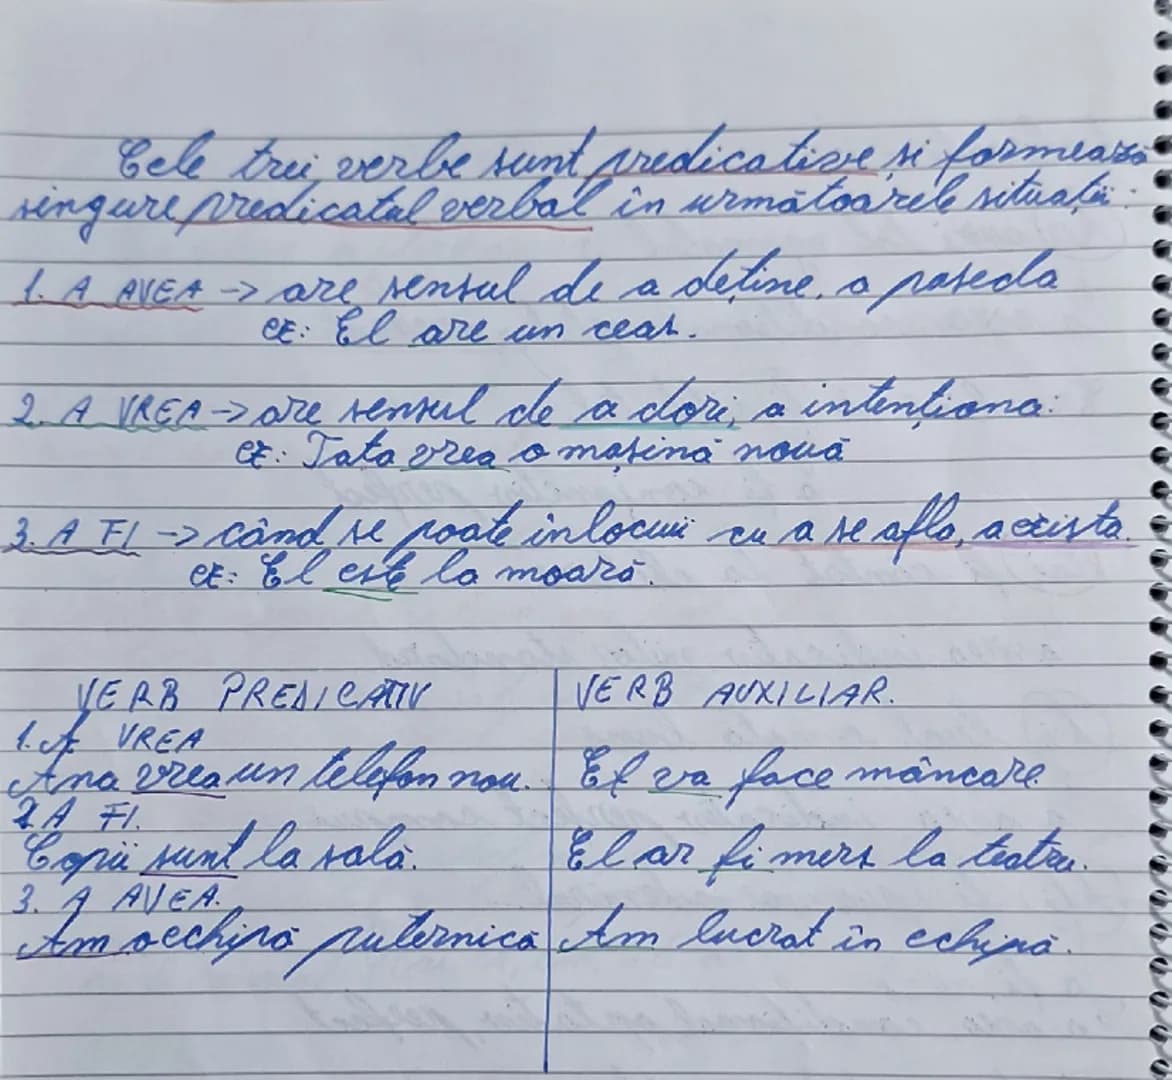 Cele trei verbe sunt predicative și formează
singure predicatul verbal în următoarele situații:
1. A AVEA -> are sensul de a deține, a poseda
EX: El are un ceas.
2. A VREA -> are sensul de a dori, a intenționa:
EX: Tata vrea o mașină nouă
3. A FI -> când se poate înlocui cu a se afla, a exista.
EX: El este la moară.
VERB PREDICATIV VERB AUXILIAR.
1. A VREA
Ana vrea un telefon nou. El va face mâncare
2 A FI.
Copii sunt la sală. El ar fi mers la teatru.
3. A AVEA.
Am o echipă puternică Am lucrat în echipă.